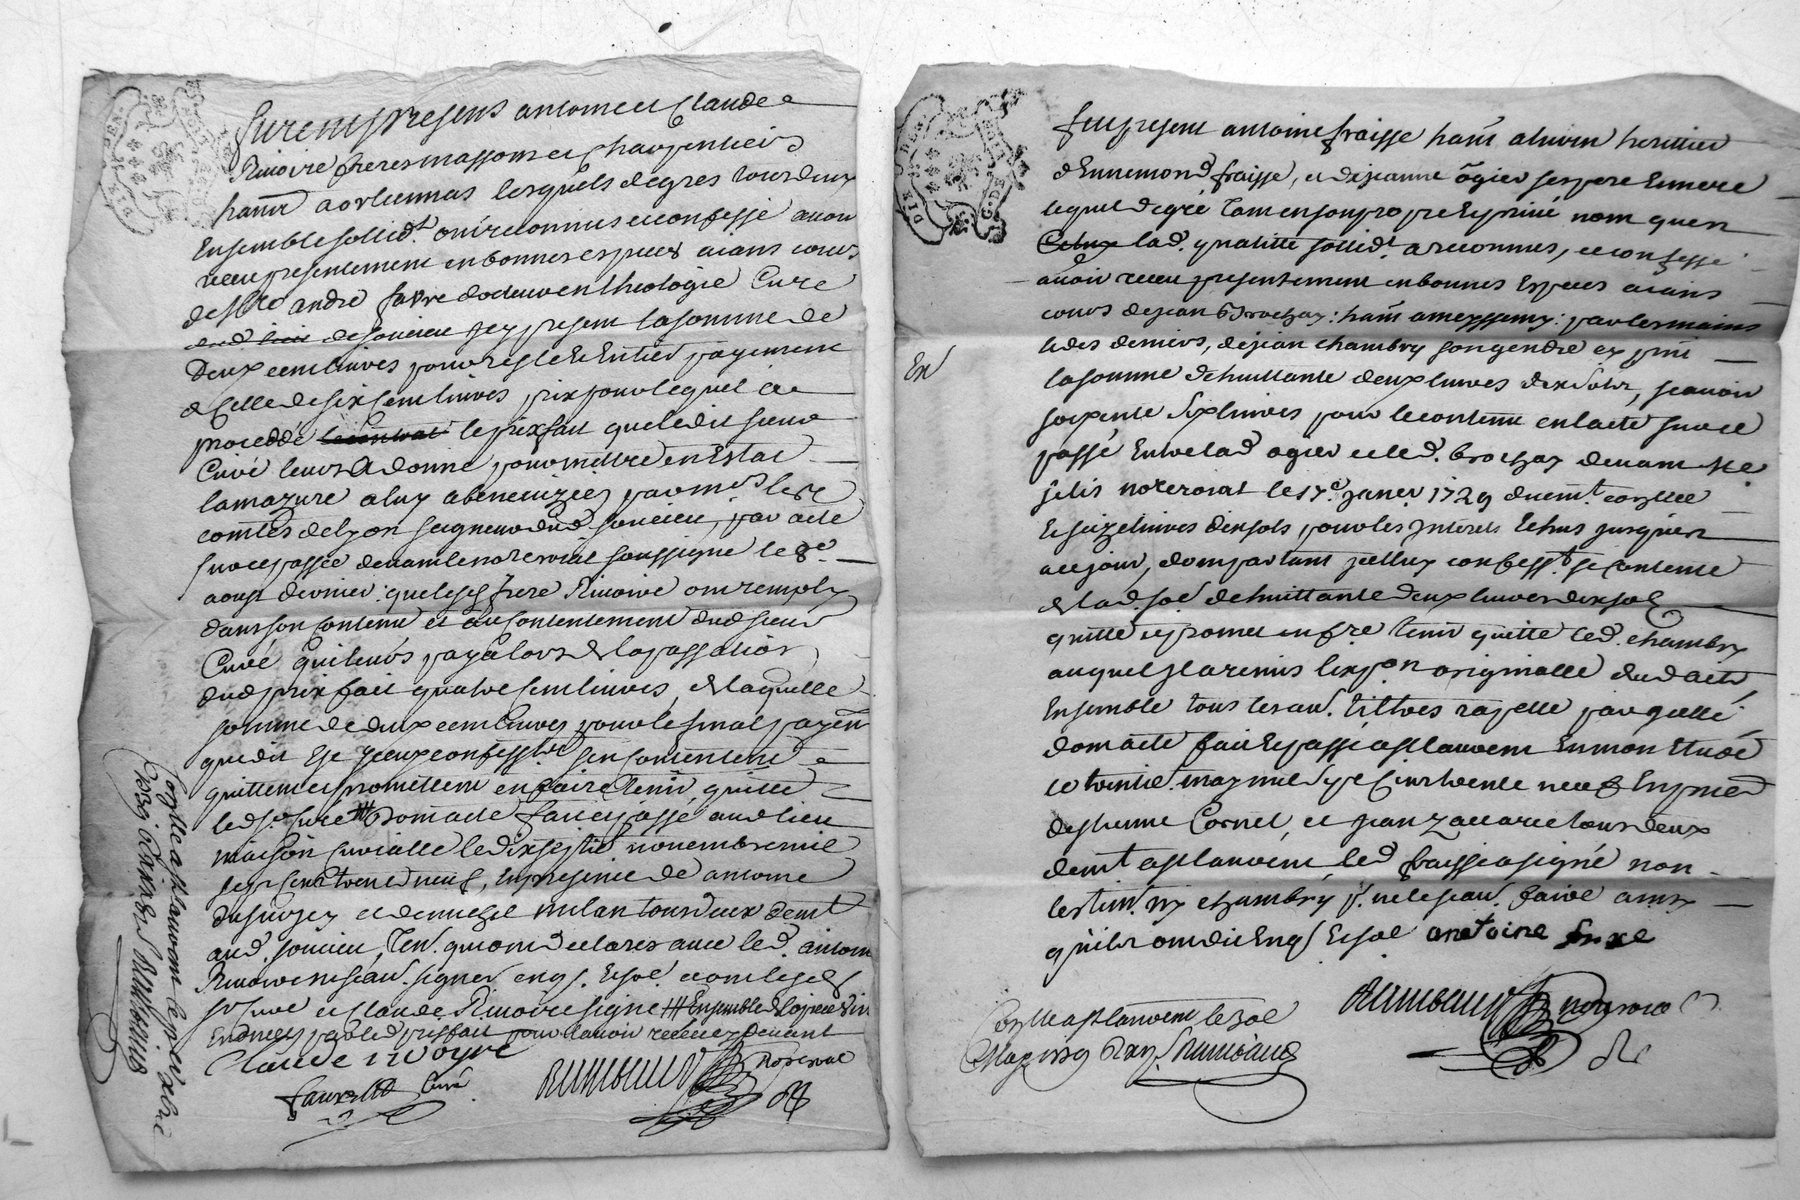 Furent presens antoine et Claude
Rivoire freres massons et charpentiers
hants a orliennas lesquels de gres tous deux
Ensemble sollidt ont reconnus et confessé avoir
receu presentement en bonnes especes aians cours
de Mre andré favre docteur en theologie Curé
de soucieu icy present la somme de
Deux cent livres pour reste et Entier payement
de Celle de six cent livres prix pour lequel
procedde le prixfait que ledit sieur
Curé leurs A donné pour mettre en Estat
la mazure a luy abenevizée par mrs les
comtes de lyon seigneurs dud. soucieu, par acte
sur ce passée devant le notre roial soussigné le 8e
aoust dernier que lesd. frere Rivoire ont remply
dans son contenu et au contentement dud sieur
Curé qui leurs paya lors de la passation
dud prixfait quatre cent livres, de laquelle
somme de deux cent livres pour le final payemt
que dit Est iceux confesst sen contentent
quittent et promettent en faire tenir quitte
led. sr Curé # Dont acte fait et passé aud lieu
maison curialle le dix sept novembre mil
sept cent trente neuf, En presence de antoine
et de michel milan tous deux demt
aud. soucieu, qui ont declarés avec led. antoine
Rivoire ne scav. signer enq. et soé. et ont lesd.
sr Curé et Claude Rivoire signé # Ensemble
pour l'avoir receu cy devant
Claude rivoyre
favre Curé
Rimbaud No. roial
Conllé a st laurent le
1739 Rimbaud
Fut present antoine fraisse hant a heritier
d'Ennemond fraisse, et de jeanne ogier ses pere Et mere
lequel de gré tant en son propre Et privé nom qu'en
lad. qualitté sollidt a reconnus, et confessé
avoir receu presentement en bonnes Especes aians
cours de jean Brochay hant a messimy: par les mains
et des deniers, de jean chambry son gendre cy pnt
la somme de huittante deux livres dix sols, scavoir
soixente six livres pour le contenu en l'acte sur ce
passé Entre lad ogier et led. brochay devant Me
notre roial le 17e janer 1729 duemt conllé
Et seize livres dix sols pour les interets Echus jusques
a ce jour, dont partant icelluy confesst se contente
de lad. soe. de huittante deux livres dix sols
quitte et promet en fre tenir quitte led. chambry
auquel il a remis l'expon originalle dud acte
Ensemble tous les au. tittres rapellé par icelle
dont acte fait Et passé a st laurent En mon Etude
le trente may mil sept cent trente neuf En pnce
destienne Cornet, et jean Zacarie tous deux
demt a st laurent, led fraisse a signé non
les tem. ny chambry p. ne le scav. faire ainsy
qu'ils ont dit Enq. Et soe
En
antoine frese
Rimbaud no. roial
Conllé a st laurent le 30e
May 1739 Rimbaud